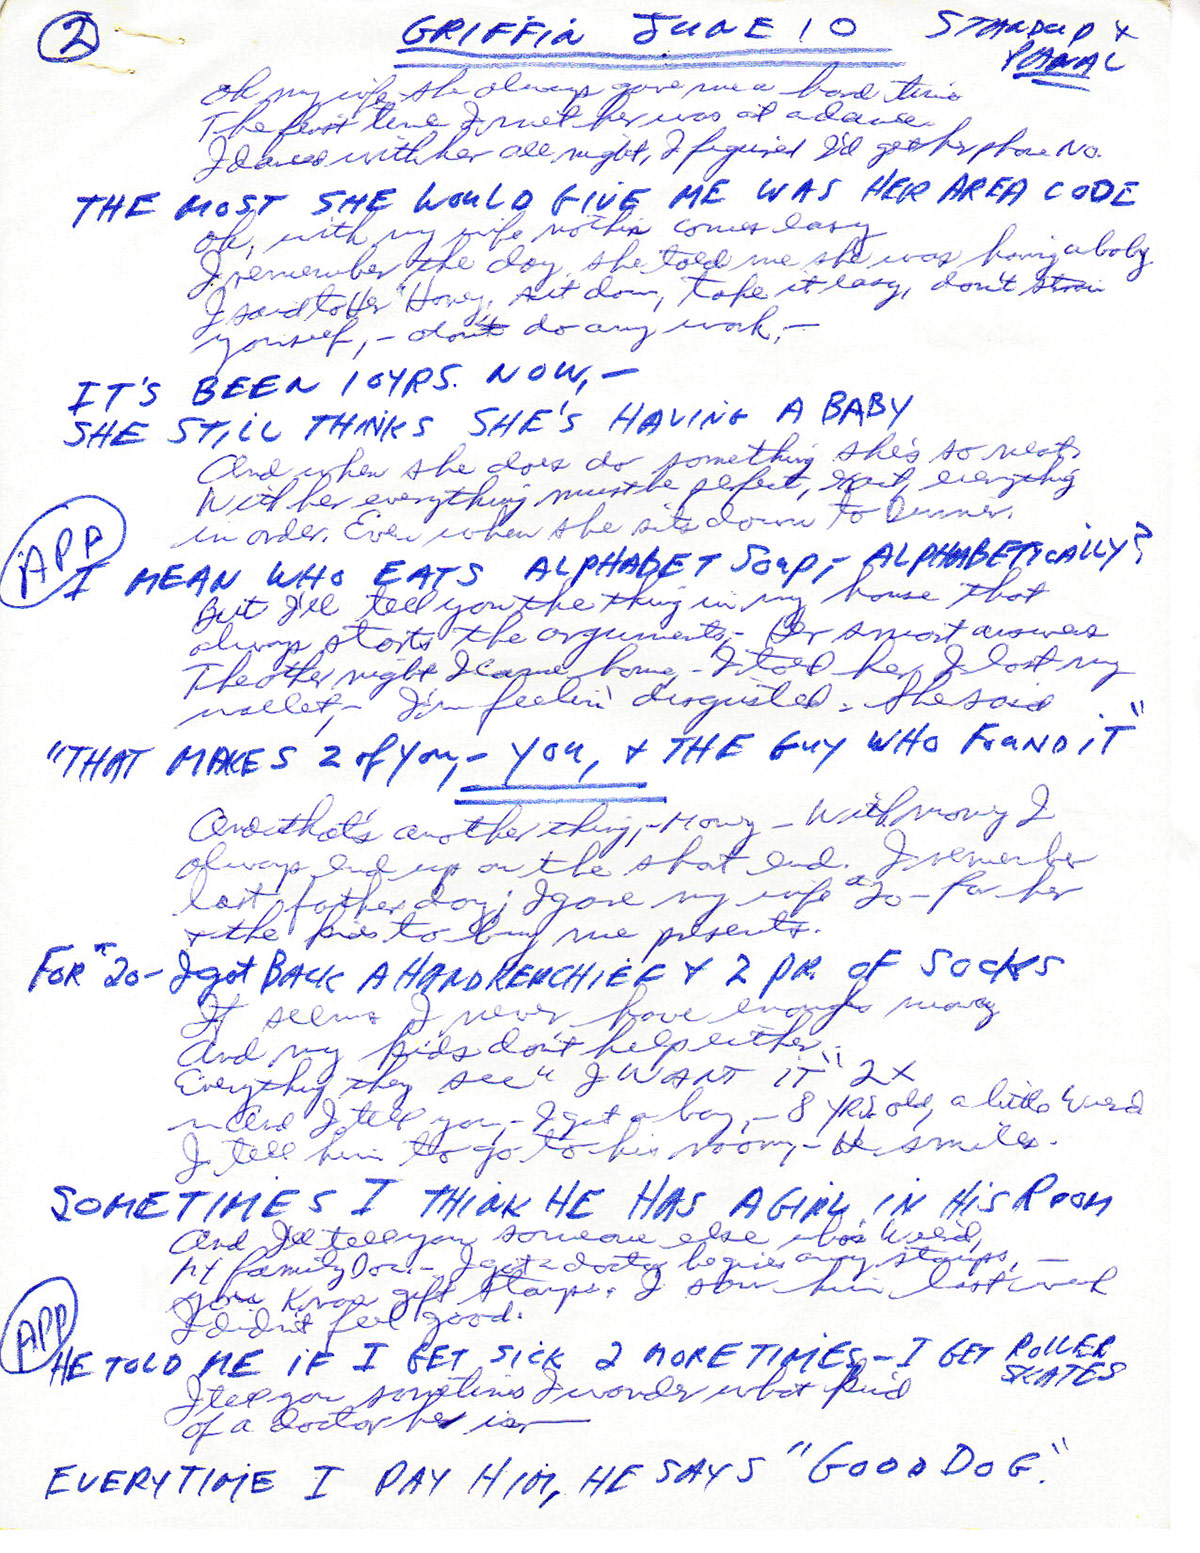 2
GRIFFIN JUNE 10
STANDUP &
PANAL
Oh my wife, she always gave me a hard time
The first time I met her was at a dance
I danced with her all night, I figured I'd get her phone No.
THE MOST SHE WOULD GIVE ME WAS HER AREA CODE
Oh, with my wife nothin comes easy
I remember the day she told me she was having a baby
I said to Her "Honey, sit down, take it easy, don't strain
yourself, - don't do any work, -
IT'S BEEN 10 YRS. NOW, -
SHE STILL THINKS SHE'S HAVING A BABY
And when she does do something she's so neat,
With her everything must be perfect, everything
in order. Even when she sits down to Dinner.
APP
I MEAN WHO EATS ALPHABET SOUP, - ALPHABETICALLY?
But I'll tell you the thing in my house that
always starts the arguments, - Her smart answers
The other night I came home - I told her, I lost my
wallet, - I'm feelin' disgusted. She said
"THAT MAKES 2 of You, - YOU, & THE GUY WHO FOUND iT"
And that's another thing, - Money - With money I
always end up on the short end. I remember
last father day, I gave my wife $20 - for her
& the kids to buy me presents.
FOR $20 - I got BACK A HANDKERCHIEF & 2 PR. OF SOCKS
It seems I never have enough money
And my kids don't help either.
Everything they see "I WANT IT" 2X
And I tell you, - I got a boy, - 8 YRS old, a little weird
I tell him to go to his room, - He smiles.
SOMETIMES I THINK HE HAS A GIRL IN HIS ROOM
And I'll tell you someone else who's Weird,
MY family Doc. - I got a doctor he gives away stamps, -
you know gift stamps. I saw him last week
I didn't feel good.
APP
HE TOLD ME iF I GET SICK 2 MORE TIMES - I GET ROLLER
SKATES
I tell you sometimes I wonder what kind
of a doctor he is -
EVERYTIME I PAY HIM, HE SAYS "GOOD DOG."